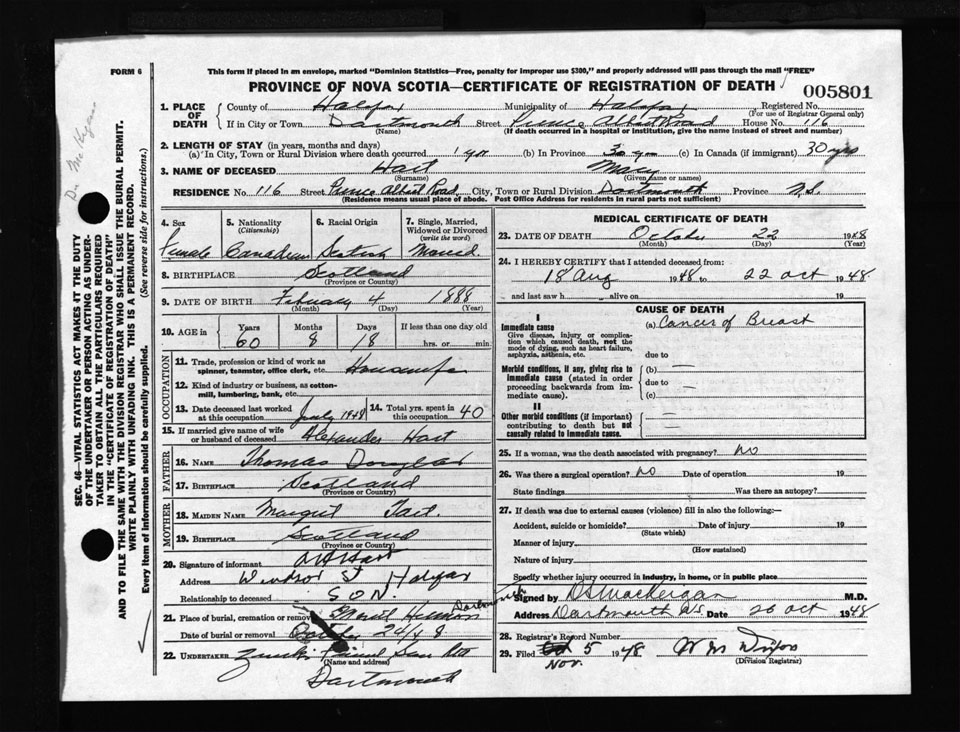 FORM 6
This form if placed in an envelope, marked "Dominion Statistics—Free, penalty for improper use $300," and properly addressed will pass through the mail "FREE"
PROVINCE OF NOVA SCOTIA—CERTIFICATE OF REGISTRATION OF DEATH
005801
1. PLACE OF DEATH
County of Halifax Municipality of Halifax Registered No.
(For use of Registrar General only)
If in City or Town Dartmouth Street Prince Albert Road House No. 116
(Name) (If death occurred in a hospital or institution, give the name instead of street and number)
2. LENGTH OF STAY (in years, months and days)
(a) In City, Town or Rural Division where death occurred 1 yr (b) In Province 30 yrs (c) In Canada (if immigrant) 30 yrs
3. NAME OF DECEASED Hart Mary
(Surname) (Given name or names)
RESIDENCE No. 116 Street Prince Albert Road, City, Town or Rural Division Dartmouth Province N.S.
(Residence means usual place of abode. Post Office Address for residents in rural parts not sufficient)
4. Sex
Female
5. Nationality (Citizenship)
Canadian
6. Racial Origin
Scotish
7. Single, Married, Widowed or Divorced (write the word)
Married.
8. BIRTHPLACE Scotland
(Province or Country)
9. DATE OF BIRTH February 4 1888
(Month) (Day) (Year)
10. AGE in
Years Months Days If less than one day old
60 8 18 hrs. or min.
OCCUPATION
11. Trade, profession or kind of work as spinner, teamster, office clerk, etc. Housewife
12. Kind of industry or business, as cotton-mill, lumbering, bank, etc.
13. Date deceased last worked at this occupation July 1948
14. Total yrs. spent in this occupation 40
15. If married give name of wife or husband of deceased Alexander Hart
FATHER
16. NAME Thomas Douglas
17. BIRTHPLACE Scotland
(Province or Country)
MOTHER
18. MAIDEN NAME Margret
19. BIRTHPLACE Scotland
(Province or Country)
20. Signature of informant Hart
Address Windsor St Halifax
Relationship to deceased SON.
21. Place of burial, cremation or removal Mount Hermon Dartmouth
Date of burial or removal October 24/48
22. UNDERTAKER
(Name and address)
Dartmouth
MEDICAL CERTIFICATE OF DEATH
23. DATE OF DEATH October 22 1948
(Month) (Day) (Year)
24. I HEREBY CERTIFY that I attended deceased from:
18 Aug 1948 to 22 Oct 1948.
and last saw h alive on 19
CAUSE OF DEATH
I
Immediate cause
Give disease, injury or complication which caused death, not the mode of dying, such as heart failure, asphyxia, asthenia, etc.
(a) Cancer of Breast
due to
Morbid conditions, if any, giving rise to immediate cause (stated in order proceeding backwards from immediate cause).
(b)
due to
(c)
II
Other morbid conditions (if important) contributing to death but not causally related to immediate cause.
25. If a woman, was the death associated with pregnancy? No
26. Was there a surgical operation? No Date of operation 19
State findings Was there an autopsy?
27. If death was due to external causes (violence) fill in also the following:—
Accident, suicide or homicide? Date of injury 19
(State which)
Manner of injury
(How sustained)
Nature of injury
Specify whether injury occurred in industry, in home, or in public place
Signed by D S MacKeigan M.D.
Address Dartmouth N.S. Date 26 Oct 1948
28. Registrar's Record Number
29. Filed Oct 5 1948
Nov.
(Division Registrar)
SEC. 46—VITAL STATISTICS ACT MAKES IT THE DUTY
OF THE UNDERTAKER OR PERSON ACTING AS UNDER-
TAKER TO OBTAIN ALL THE PARTICULARS REQUIRED
IN THE "CERTIFICATE OF REGISTRATION OF DEATH"
AND TO FILE THE SAME WITH THE DIVISION REGISTRAR WHO SHALL ISSUE THE BURIAL PERMIT.
WRITE PLAINLY WITH UNFADING INK. THIS IS A PERMANENT RECORD.
Every item of information should be carefully supplied. (See reverse side for instructions.)